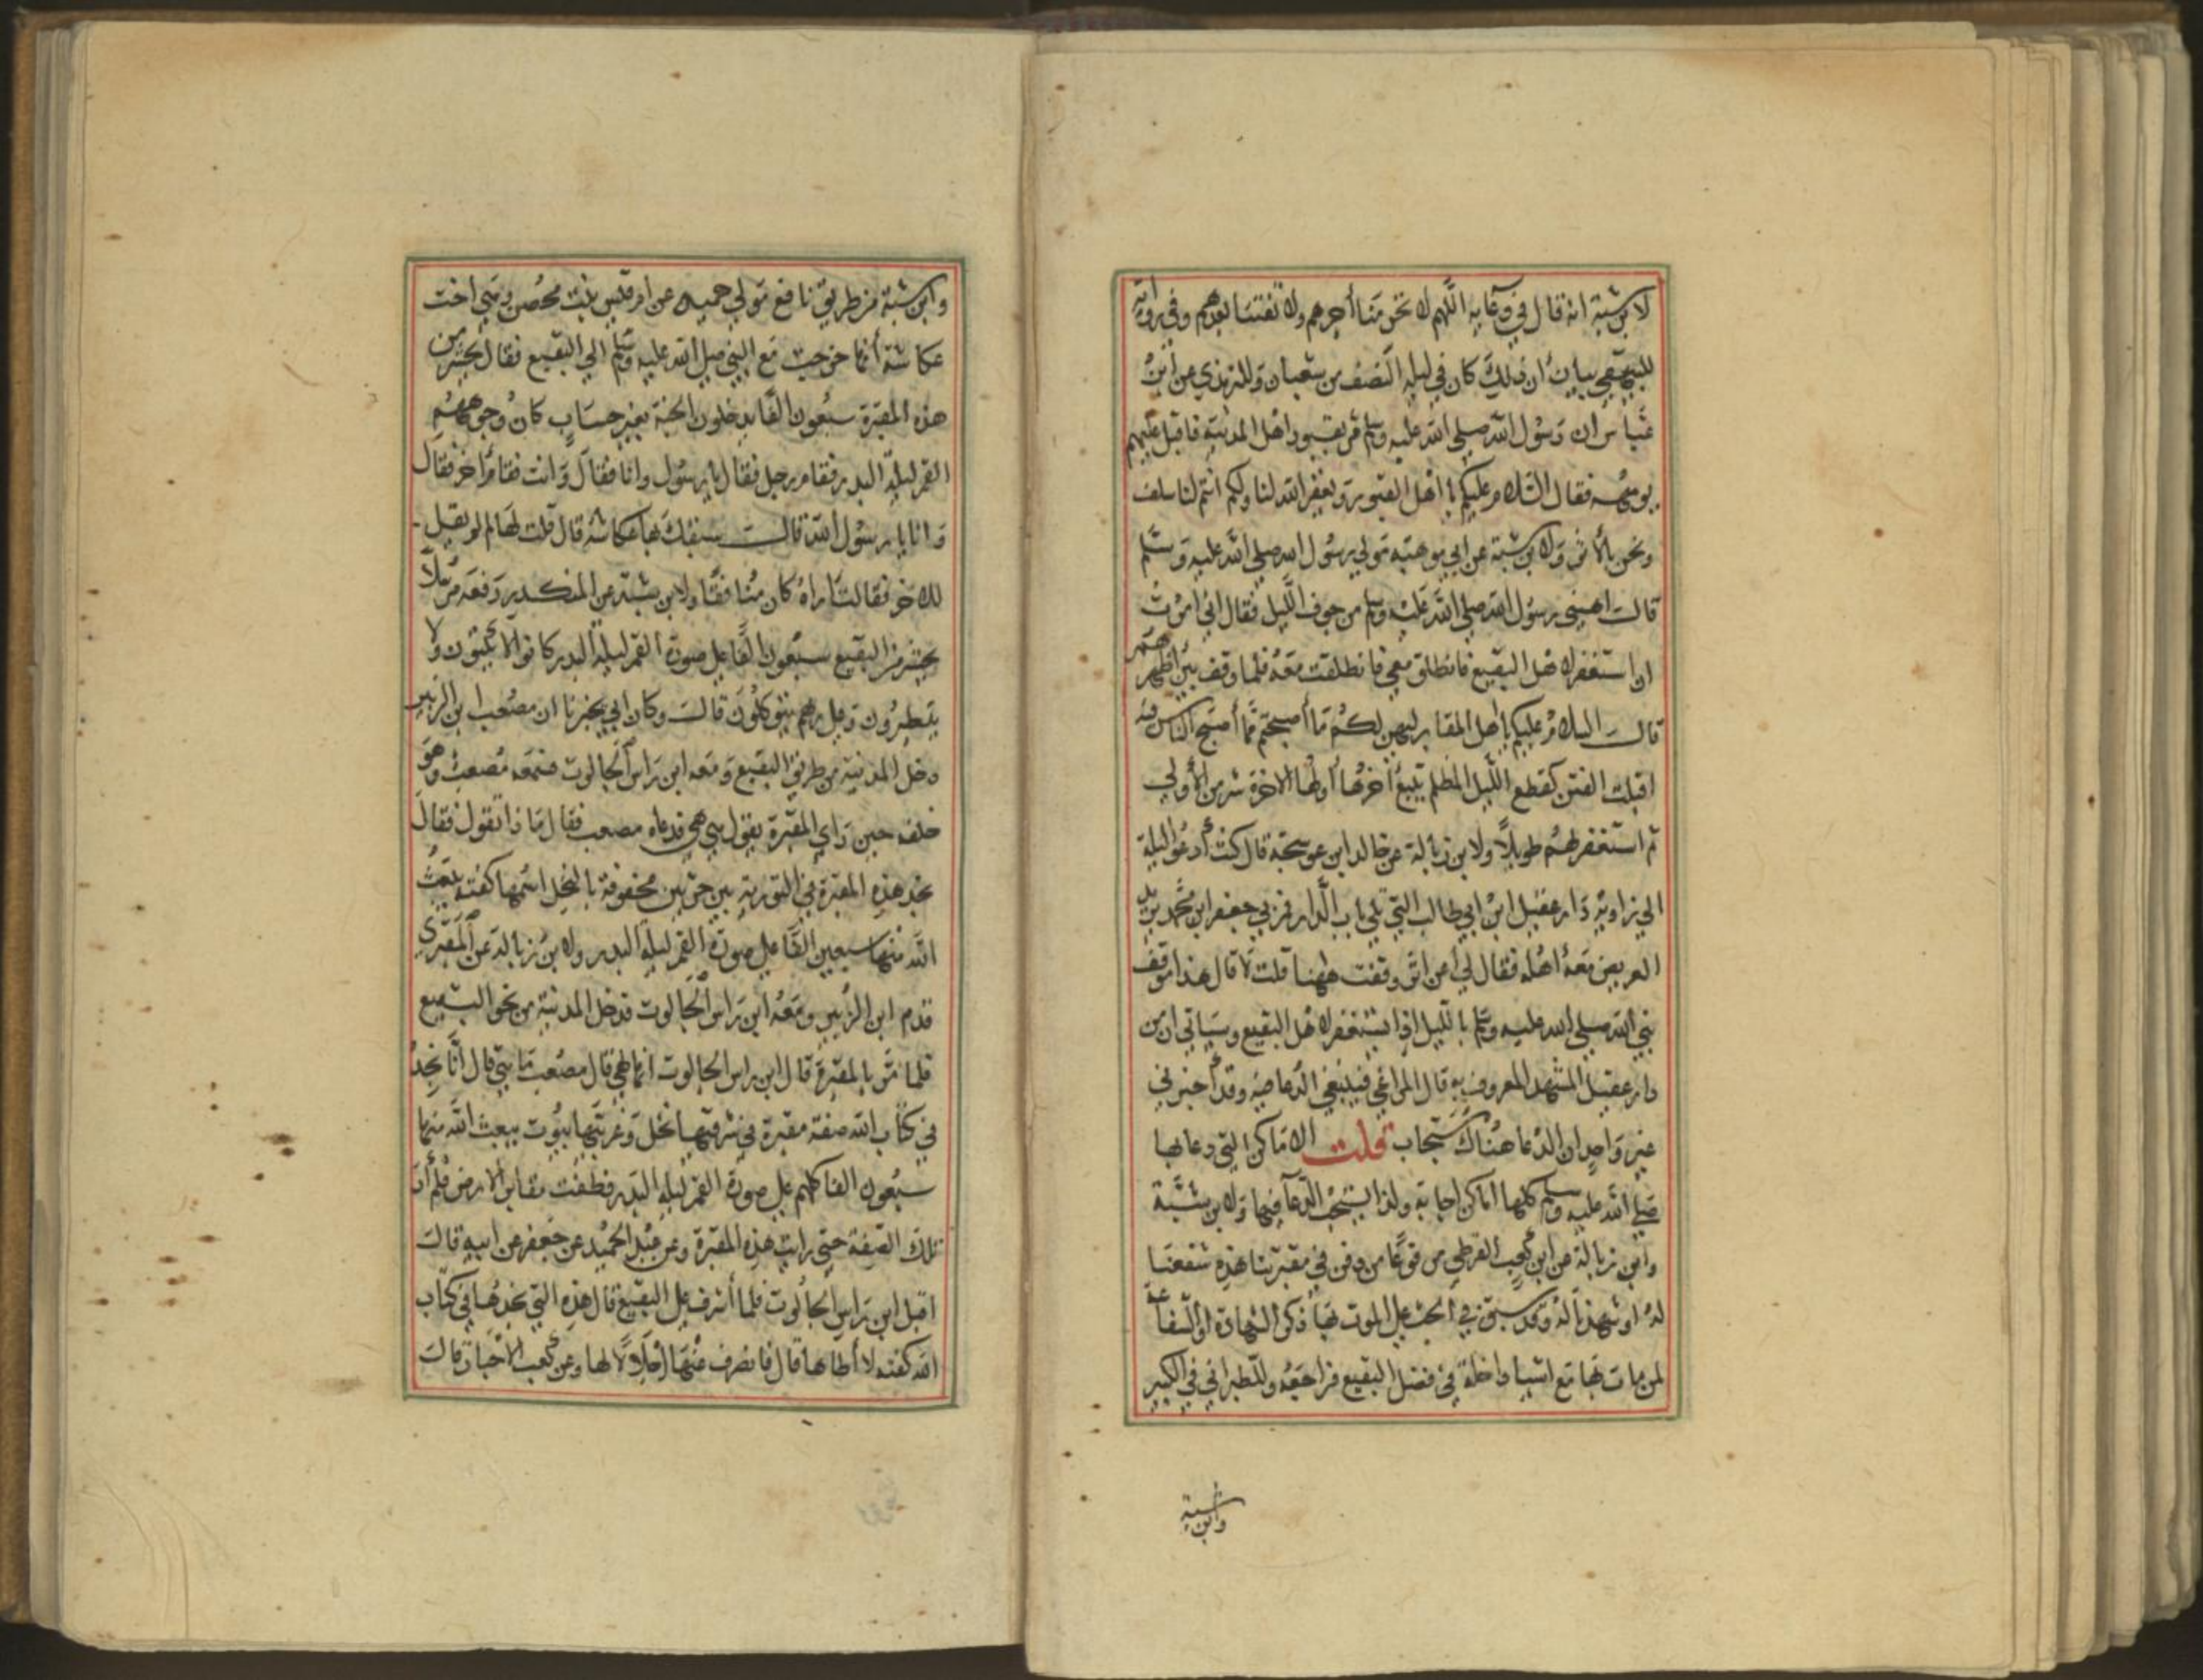 لابن شبة انه قال في دعايه اللهم لا تحرمنا أجرهم ولا تفتنا بعدهم وفي رواية
للبيهقي بيان أن ذلك كان في ليلة النصف من شعبان وللترمذي عن ابن
عباس ان رسول الله صلي الله عليه وسلم مر بقبور اهل المدينة فاقبل عليهم
بوجهه فقال السلام عليكم يا اهل القبور ويغفر الله لنا ولكم انتم لنا سلف
ونحن بالأثر ولابن شبة عن ابي موهبه مولي رسول الله صلي الله عليه وسلم
قالت اهبني رسول الله صلي الله عليه وسلم من جوف الليل فقال اني امرت
ان استغفر لاهل البقيع فانطلق معي فانطلقت معه فلما وقف بين اظهرهم
قالت السلام عليكم يا اهل المقابر ليهن لكم ما أصبحتم مما أصبح الناس فيه
اقبلت الفتن كقطع الليل المظلم يتبع أخرها أولها الاخرة شر من الأولي
ثم استغفر لهم طويلاً ولابن زبالة عن خالد ابن عوسجة قال كنت أدعو ليلة
الي زاوية دار عقيل ابن ابي طالب التي تلي باب الدار فمر بي جعفر ابن محمد يريد
العريض معه اهله فقال لي أعن اثر وقفت ههنا قلت لا قال هذا موقف
نبي الله صلي الله عليه وسلم بالليل اذا استغفر لاهل البقيع وسياتي ان من
دار عقيل المشهد المعروف به قال المراغي فينبغي الدعا فيه وقد أخبرني
غير واحد ان الدعا هناك مستجاب قلت الاماكن التي دعا بها
صلي الله عليه وسلم كلها اماكن اجابة ولذا يستحب الدعآ فيها ولابن شبة
وابن زبالة عن ابن كعب القرظي مرفوعا من دفن في مقبرتنا هذه شفعنا
له او شهدنا له وقد سبق في الحث علي الموت بها ذكر الشهادة او الشفاعة
لمن مات بها مع اشيا داخلة في فضل البقيع فراجعه وللطبراني في الكبير
وابن شبة
وابن شبة من طريق نافع مولي حميد عن ام قيس بنت محصن وهي اخت
عكاشة أنها خرجت مع النبي صلي الله عليه وسلم الي البقيع فقال يحشر من
هذه المقبرة سبعون الفا يدخلون الجنة بغير حساب كان وجوههم
القمر ليلة البدر فقام رجل فقال يا رسول وانا فقال وانت فقام اخر فقال
وانا يا رسول الله قالت سبقك بها عكاشة قال قلت لها لم لم يقل
للاخر فقالت اراه كان منافقا ولابن شبة عن المنكدر رفعه مرسلا
يحشر من البقيع سبعون الفا علي صورة القمر ليلة البدر كانوا لا يكتوون ولا
يتطيرون وعلي ربهم يتوكلون قالت وكان ابي يخبرنا ان مصعب ابن الزبير
دخل المدينة من طريق البقيع ومعه ابن راس الجالوت فسمعه مصعب وهو
خلفه حين راي المقبرة يقول هي هي فدعاه مصعب فقال ماذا تقول فقال
نجد هذه المقبرة في التورية بين حرتين محفوفة بالنخل اسمها كفتة يبعث
الله منها سبعين الفا علي صورة القمر ليلة البدر ولابن زبالة عن المقبري
قدم ابن الزبير ومعه ابن راس الجالوت فدخل المدينة من نحو البقيع
فلما مر بالمقبرة قال ابن راس الجالوت انها لهي قال مصعب ما هي قال انا نجد
في كتاب الله صفة مقبرة في شرقيها نخل وغربيها بيوت يبعث الله منها
سبعون الفا كلهم علي صورة القمر ليلة البدر فطفت مقابر الارض فلم أر
تلك الصفة حتي رايت هذه المقبرة وعن عبد الحميد عن جعفر عن ابيه قالت
اقبل ابن راس الجالوت فلما أشرف علي البقيع قال هذه التي نجدها في كتاب
الله كفته لا أطاها قال فانصرف عنها اجلالا لها وعن كعب الاحبار قالت